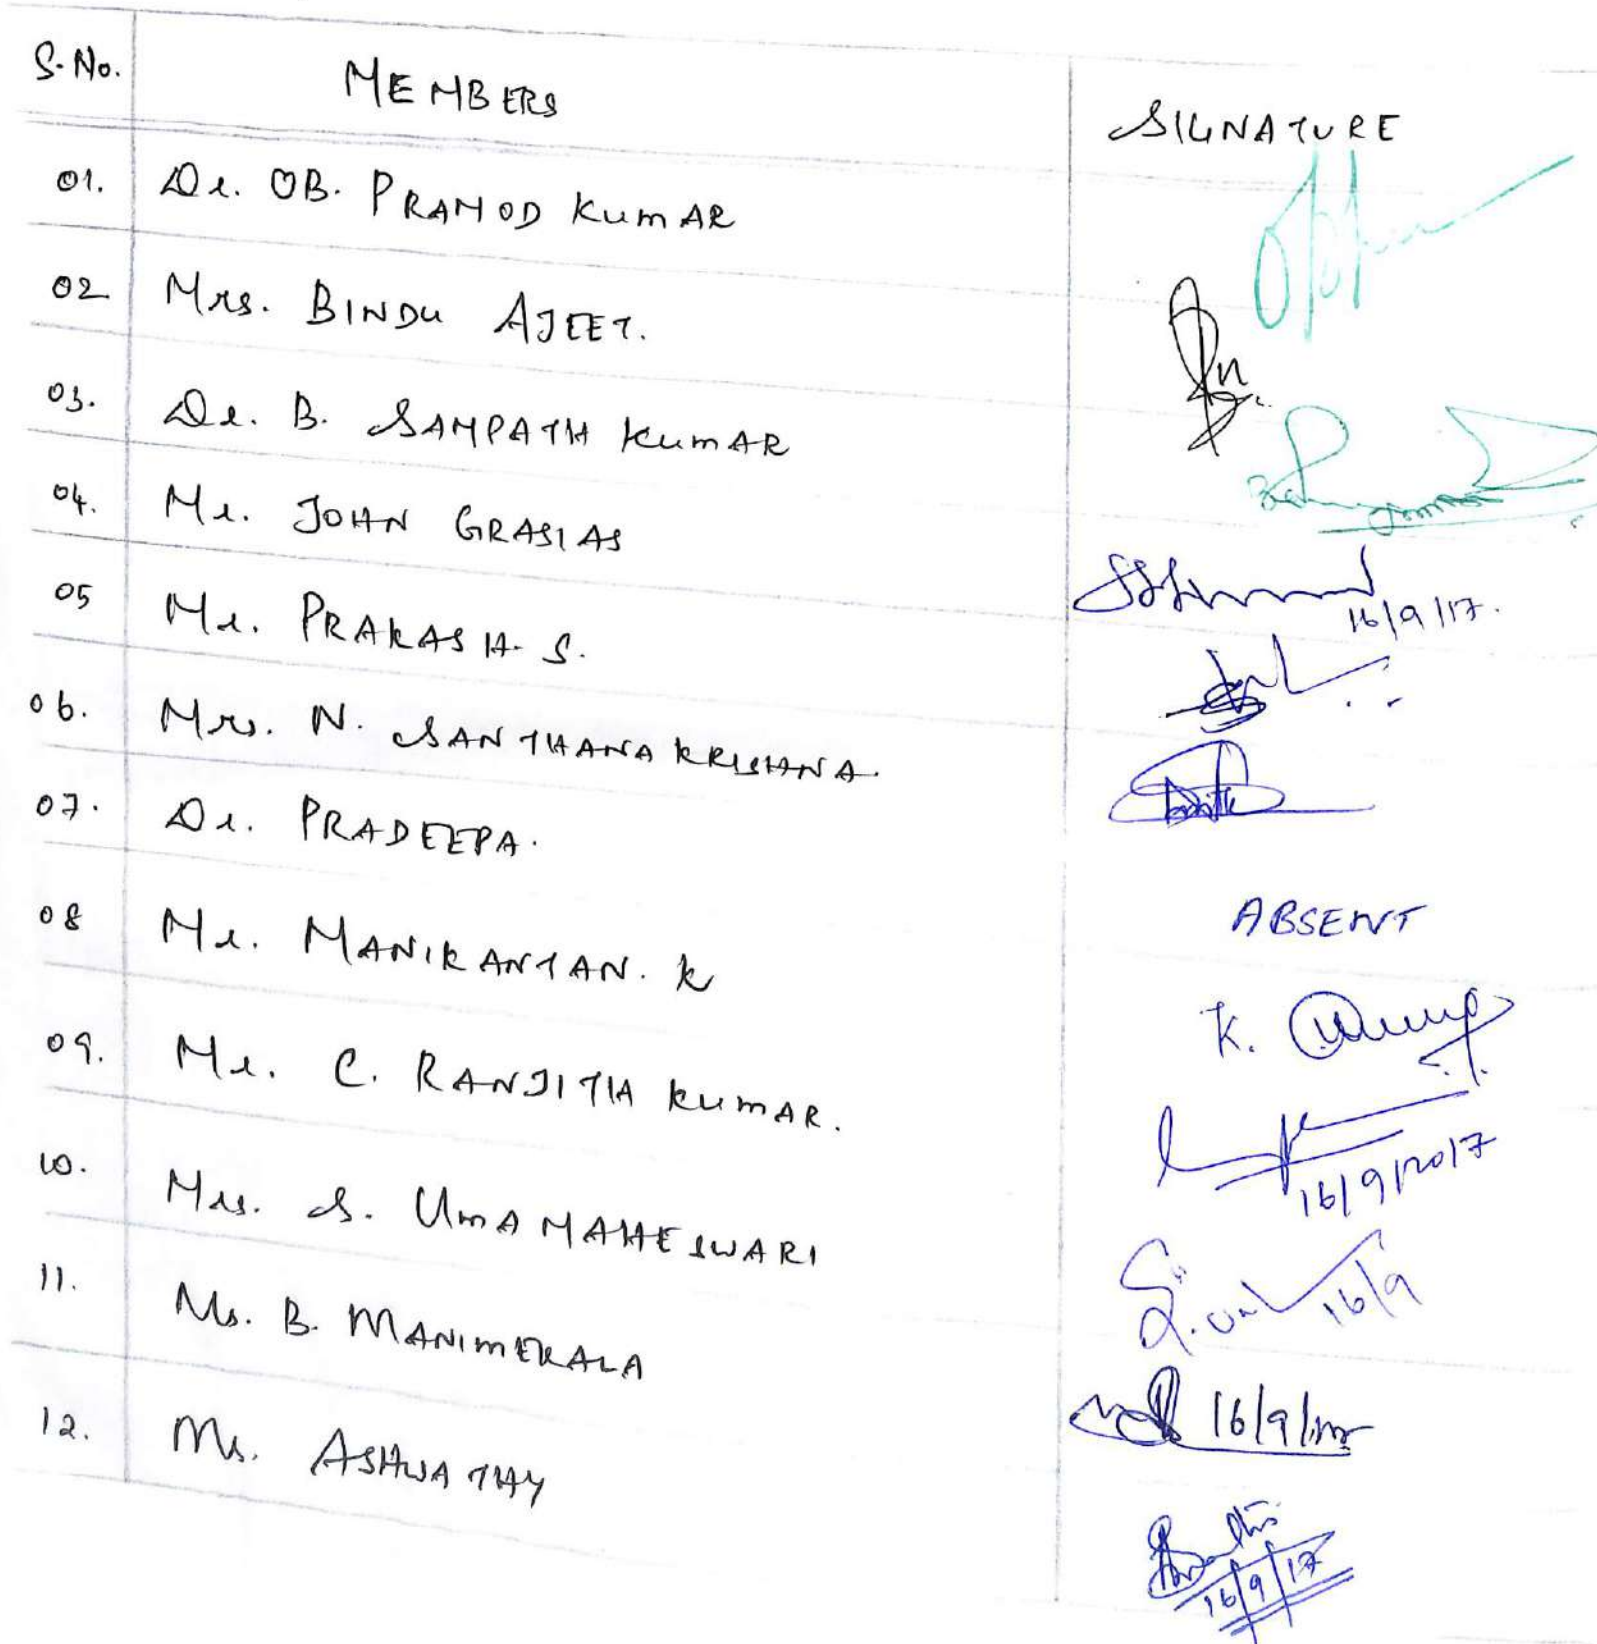 S.No. MEMBERS SIGNATURE
01. Dr. OB. PRAMOD KUMAR
02 Mrs. BINDU AJEET.
03. Dr. B. SAMPATH KUMAR
04. Mr. JOHN GRASIAS
16/9/17.
05 Mr. PRAKASH. S.
06. Mrs. N. SANTHANA KRISHNA.
07. Dr. PRADEEPA. ABSENT
08 Mr. MANIKANTAN. K K.
09. Mr. C. RANJITH KUMAR.
16/9/2017
10. Mrs. S. UMA MAHESWARI
16/9
11. Ms. B. MANIMEKALA
16/9/
12. Ms. ASHWATHY
16/9/17